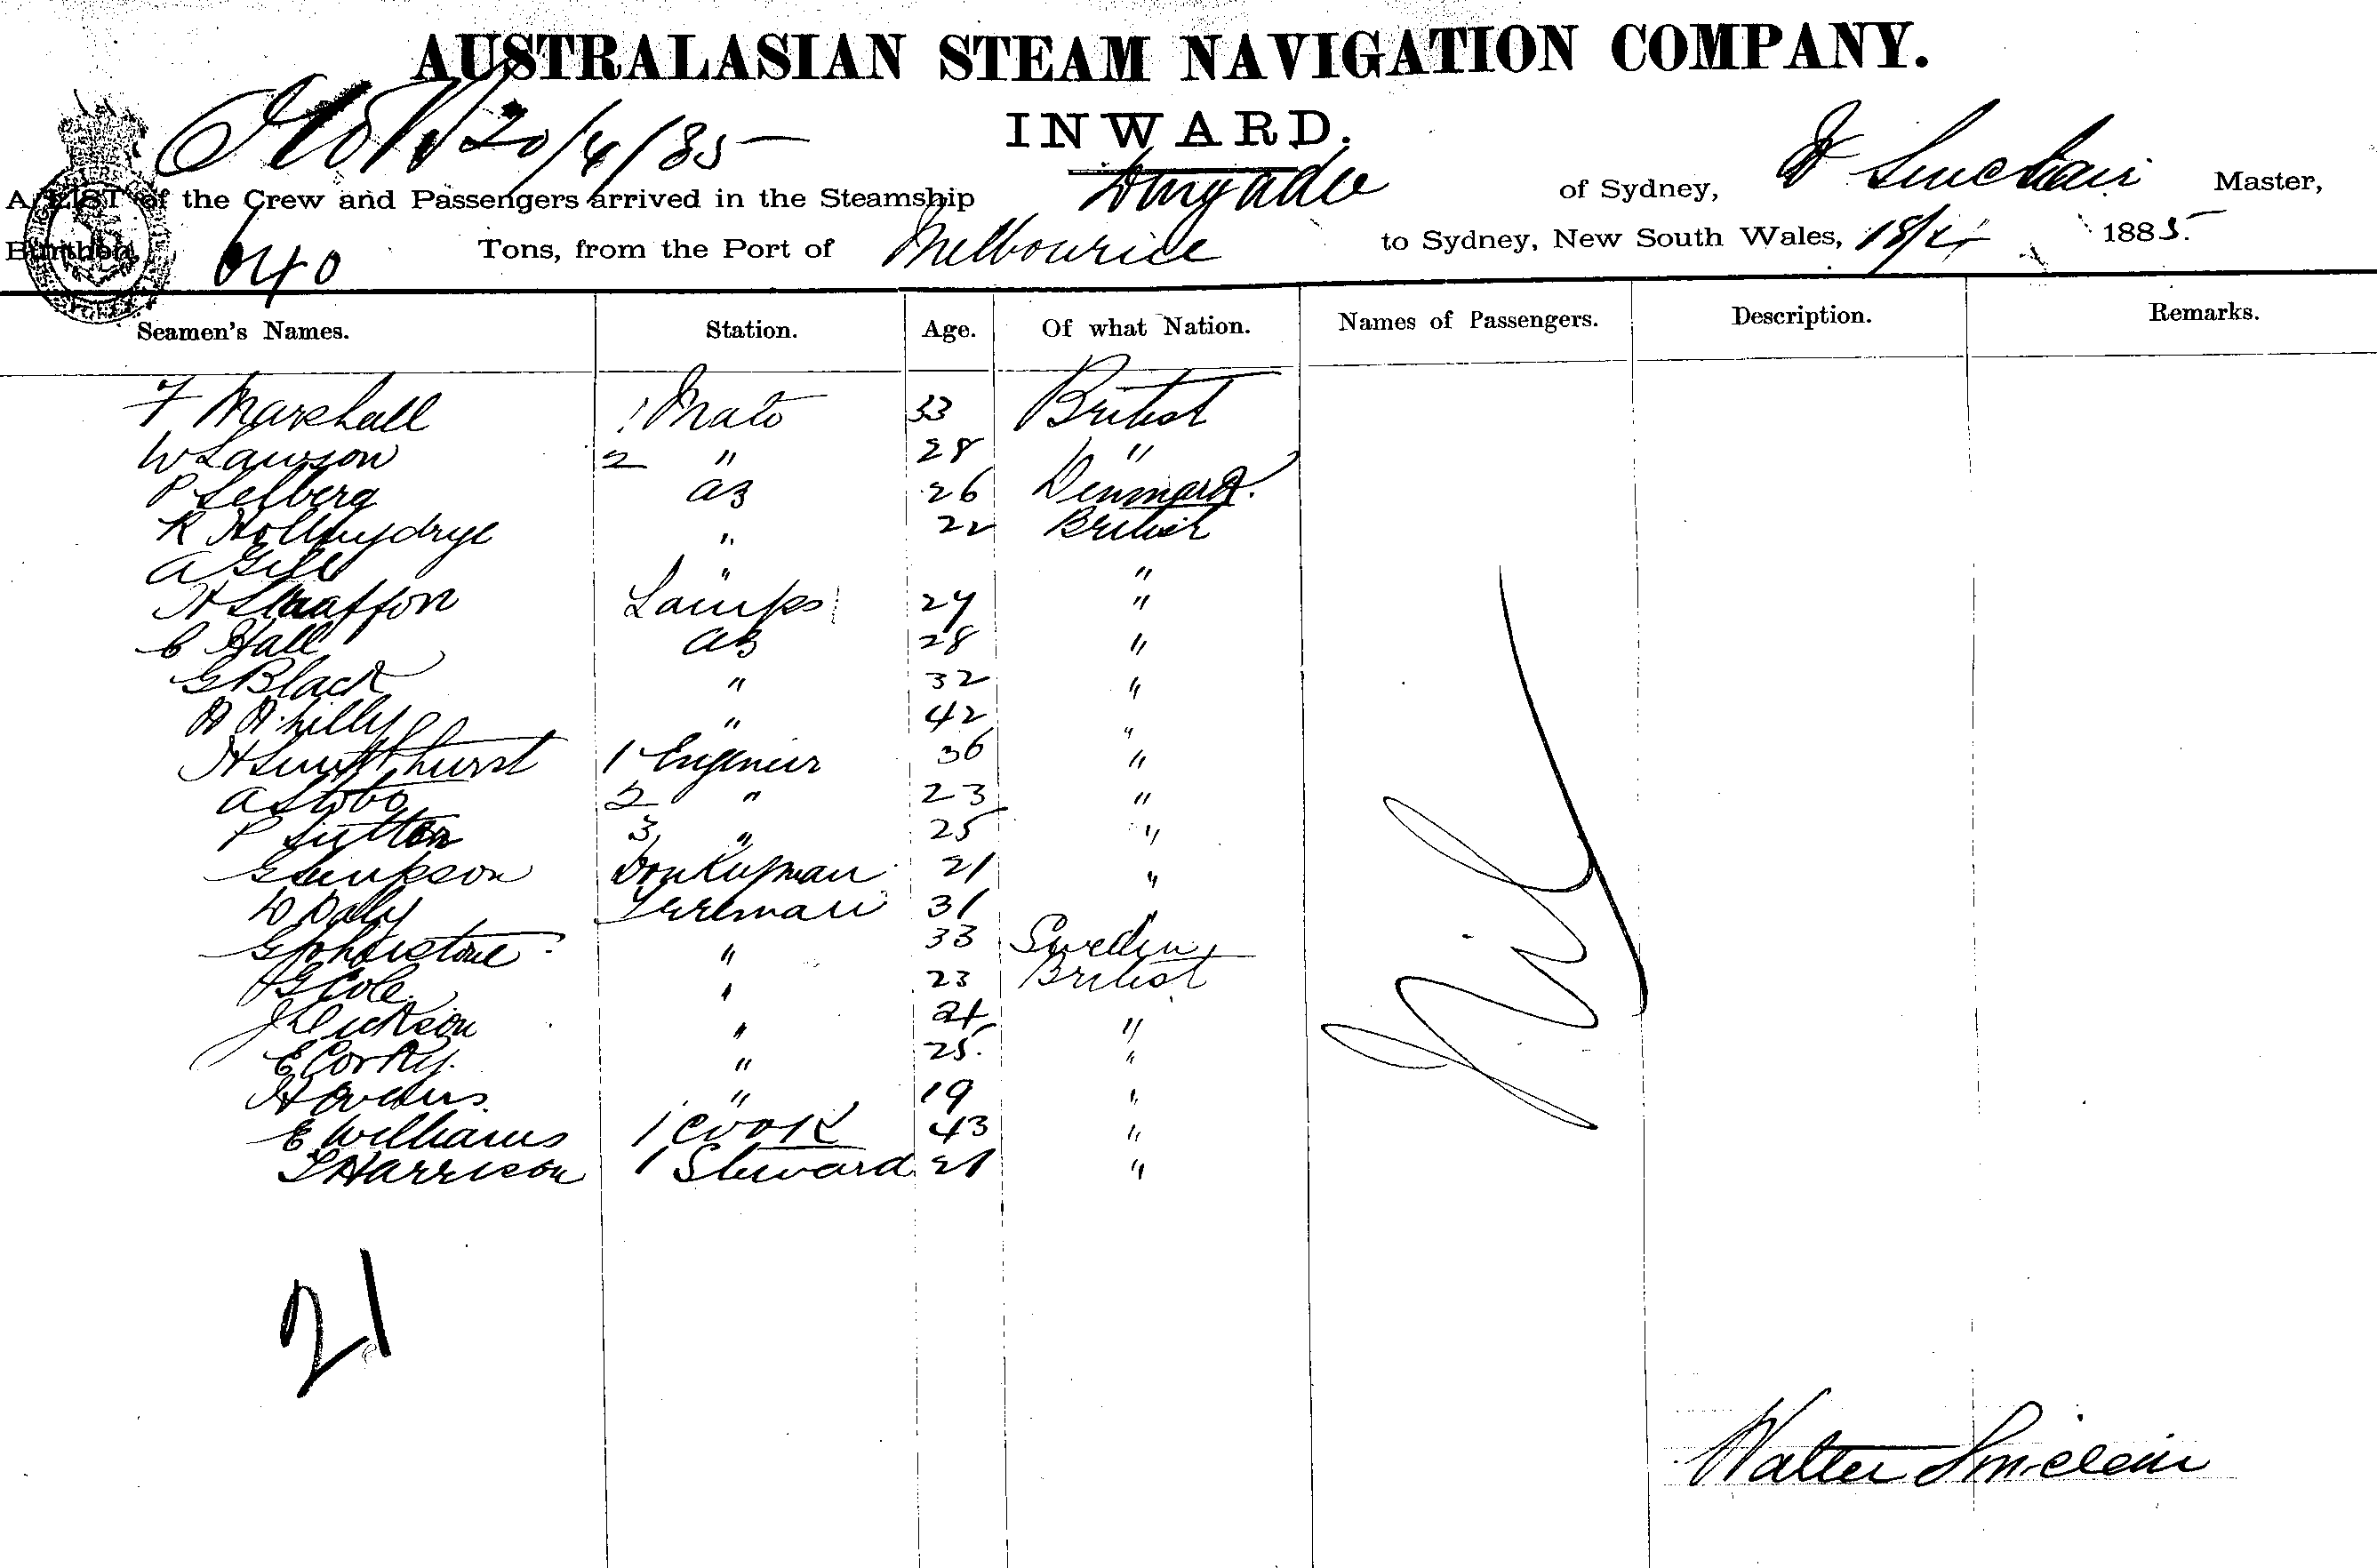 AUSTRALASIAN STEAM NAVIGATION COMPANY.
20/4/85
INWARD.
A LIST of the Crew and Passengers arrived in the Steamship of Sydney, Sinclair Master,
Burthen 640 Tons, from the Port of Melbourne to Sydney, New South Wales, 18/4 1885.
Seamen's Names. Station. Age. Of what Nation. Names of Passengers. Description. Remarks.
F Marshall 1 Mate 33 British
W Lawson 2 " 28 "
P Selberg AB 26 Denmark.
R " 22 British
A Gill " "
H Lamps 24 "
C Hall AB 28 "
G Black " 32 "
" 42 "
H 1 Engineer 36 "
A Stobo 2 " 23 "
P Sutton 3 " 25 "
G Simpson Donkeyman 21 "
D Daly Fireman 31 "
G Johnstone " 33 Sweden
G Cole " 23 British
J Dickson " 24 "
E Corky. " 25. "
H " 19 "
E Williams 1 Cook 43 "
T Harrison 1 Steward 21 "
Nil
21
Walter Sinclair